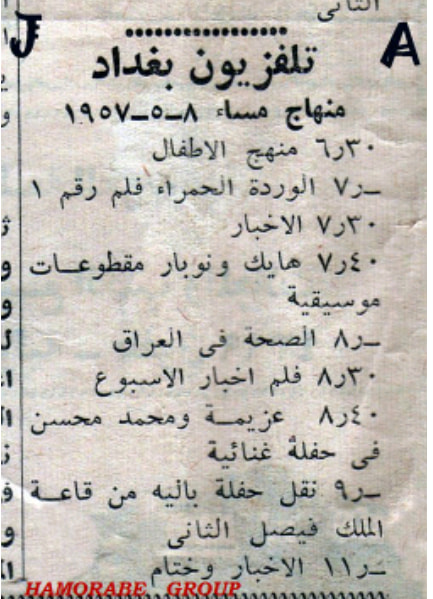 الثانى
J
A
تلفزيون بغداد
منهاج مساء ٨–٥–١٩٥٧
٦ر٣٠ منهج الاطفال
٧ر– الوردة الحمراء فلم رقم ١
٧ر٣٠ الاخبار
٧ر٤٠ هايك ونوبار مقطوعات
موسيقية
٨ر– الصحة فى العراق
٨ر٣٠ فلم اخبار الاسبوع
٨ر٤٠ عزيمة ومحمد محسن
فى حفلة غنائية
٩ر– نقل حفلة باليه من قاعة
الملك فيصل الثانى
١١ر– الاخبار وختام
HAMORABE GROUP